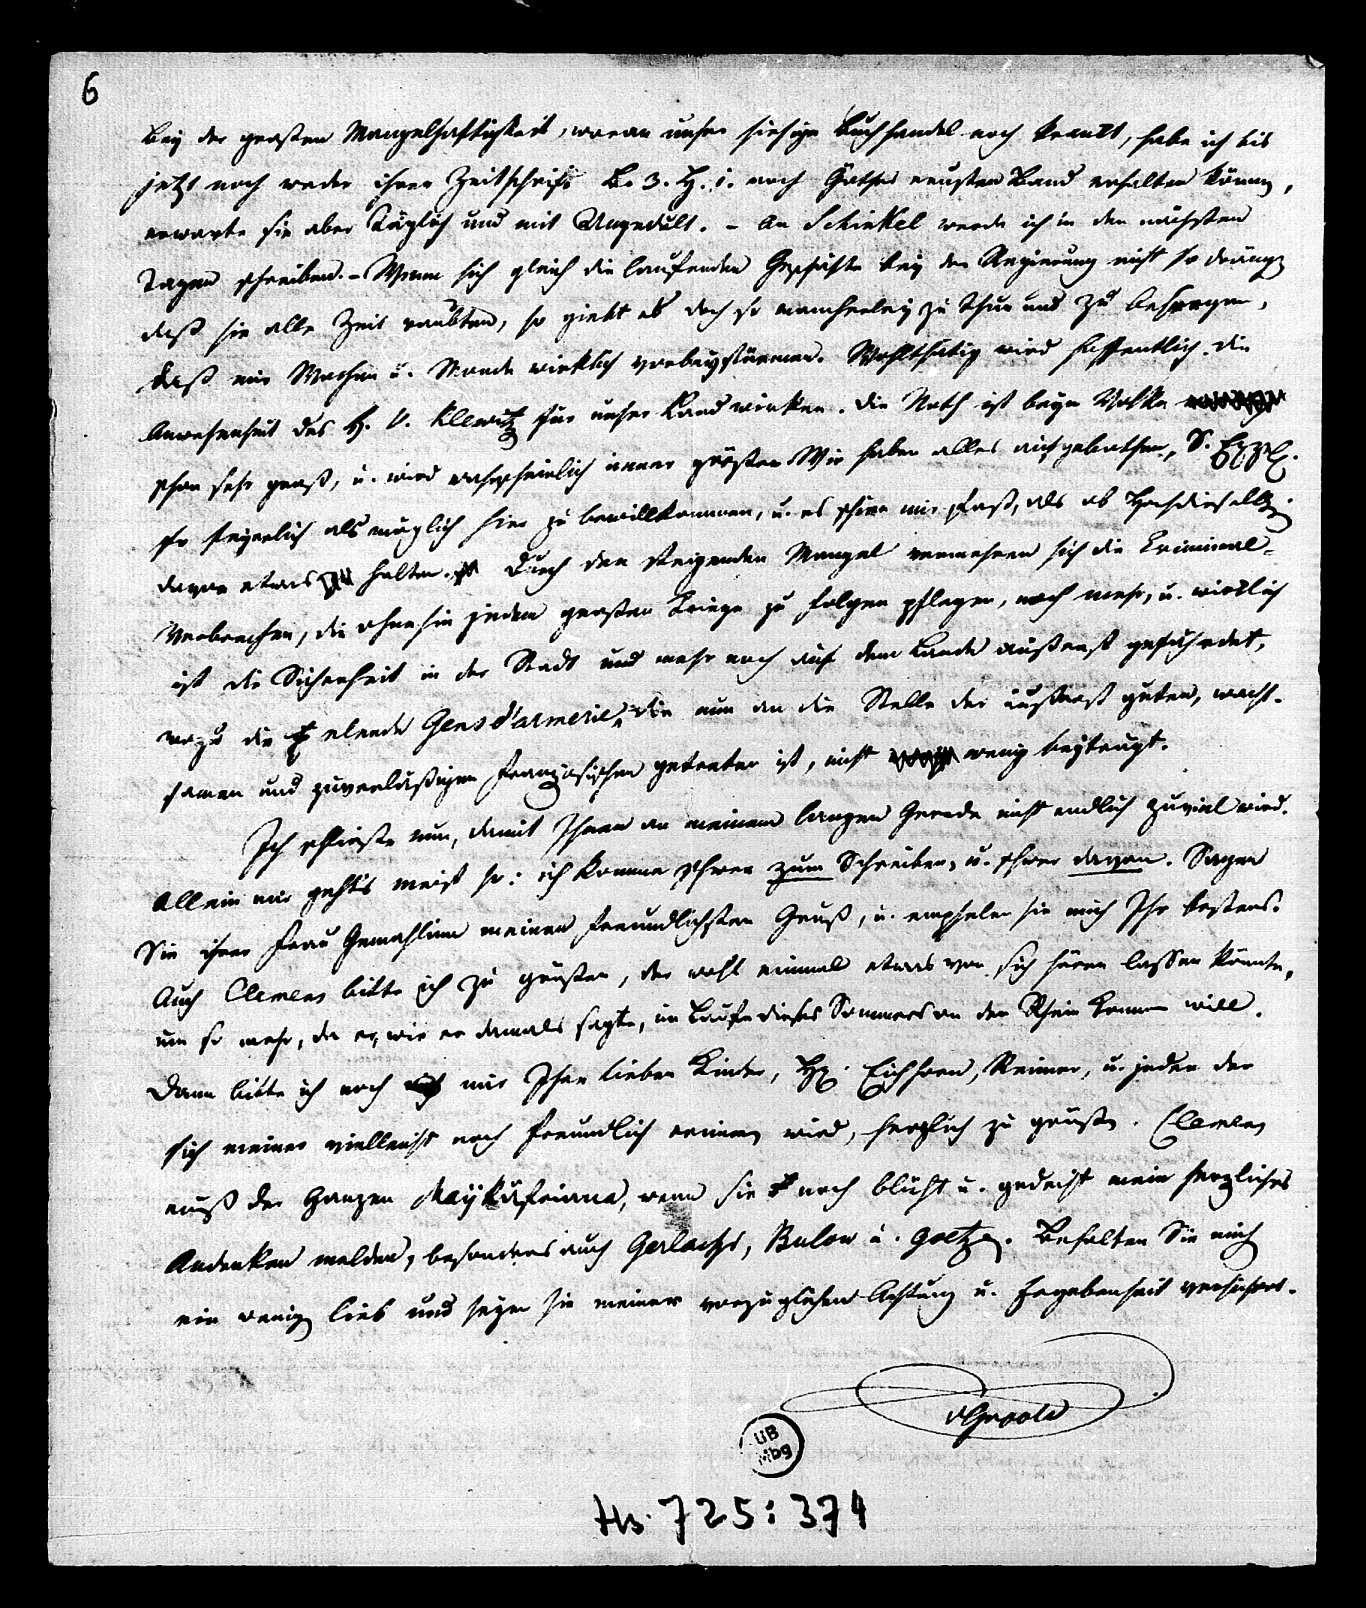 6
Bey der großen Mangelhaftigkeit, woran unser hiesiger Buchhandel noch krankt, habe ich bis
jetzt noch weder ihrer Zeitschrift B. 3. H. 1. noch Göthes neusten Band erhalten können,
erwarte sie aber täglich und mit Ungedult. – An Schinkel werde ich in den nächsten
Tagen schreiben. – Wenn sich gleich die laufenden Geschäfte bey der Regierung nicht so drängen
daß sie alle Zeit raubten, so giebt es doch so mancherley zu thun und zu besorgen,
daß mir Wochen u. Monde wirklich vorbeystürmen. Wohlthätig wird hoffentlich die
Anwesenheit des H. v. Klewitz für unser Land wirken. Die Noth ist beym Volke
schon sehr groß, u. wird wahrscheinlich immer größer. Wir haben alles aufgebothen, S. Exzell.
so feyerlich als möglich hier zu bewillkommen, u. es schien mir fast, als ob Hochdieselben
davon etwas zu halten. Durch den steigenden Mangel vermehren sich die Criminal-
Verbrechen, die ohnehin jedem großen Kriege zu folgen pflegen, noch mehr, u. wirklich
ist die Sicherheit in der Stadt und mehr noch auf dem Lande äußerst gefährdet,
wozu die elende Gensd'armerie, die nun an die Stelle der äußerst guten, wach-
samen und zuverläßigen französischen getreten ist, nicht wenig beyträgt.
Ich schließe nun, damit Ihnen an meinem langen Gerede nicht endlich zuviel wird.
Allein mir geht's meist so: ich komme schwer zum Schreiben, u. schwer davon. Sagen
Sie ihrer Frau Gemahlinn meinen freundlichsten Gruß, u. empfelen sie mich Ihr bestens.
Auch Clemens bitte ich zu grüßen, der wohl einmal etwas von sich hören lassen könnte,
um so mehr, da er, wie er damals sagte, im Laufe dieses Sommers an den Rhein kommen will.
Dann bitte ich noch mir Ihre lieben Kinder, H. Eichhorn, Reimer, u. jeden der
sich meiner vielleicht noch freundlich erinnern wird, herzlich zu grüßen. Clemens
muß der ganzen Maykäferiana, wenn sie noch blüht u. gedeiht mein herzliches
Andenken melden, besonders auch Gerlachs, Bulow u. Goetze. Behalten Sie mich
ein wenig lieb und seyen sie meiner vorzüglichen Achtung u. Ergebenheit versichert.
vGroote
UB
Mbg
Hs. 725:374